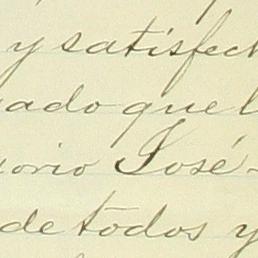 y satisfech
ado que l
orio José-
de todos y